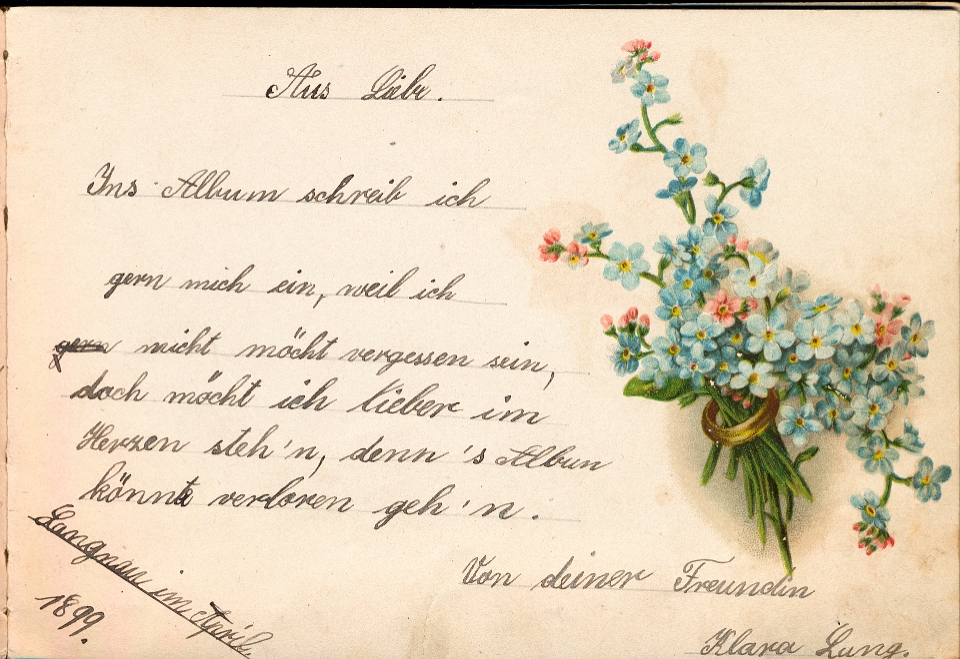 Aus Liebe.
Ins Album schreib ich
gern mich ein, weil ich
gern nicht möcht vergessen sein,
doch möcht ich lieber im
Herzen steh'n, denn 's Album
könnte verloren geh'n.
Von deiner Freundin
Klara Lung.
Langnau im April.
1899.